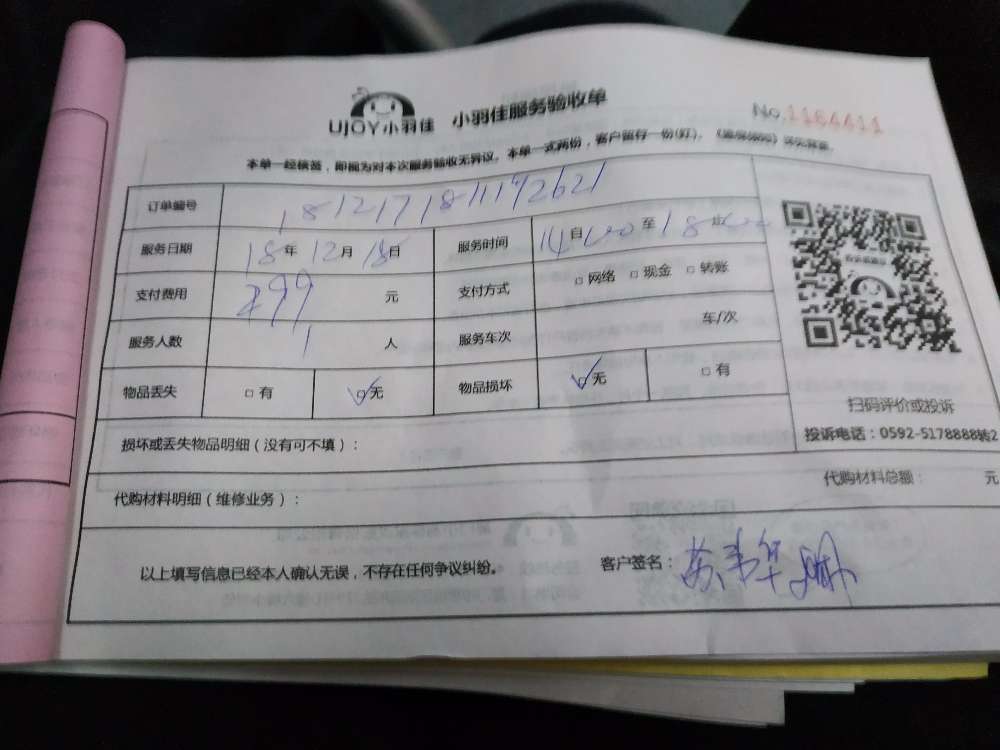 UJOY小羽佳 小羽佳服务验收单 No.1164411
本单一经核签，即视为对本次服务验收无异议。本单一式两份，客户留存一份(灯)。
订单编号
服务日期 18年12月18日 服务时间 14:00至18:00
支付费用 299元 支付方式 □网络 □现金 □转账
服务人数 1人 服务车次 车/次
物品丢失 □有 ☑无 物品损坏 ☑无 □有
扫码评价或投诉
投诉电话：0592-5178888转2
损坏或丢失物品明细（没有可不填）：
代购材料明细（维修业务）： 代购材料总额： 元
以上填写信息已经本人确认无误，不存在任何争议纠纷。 客户签名：